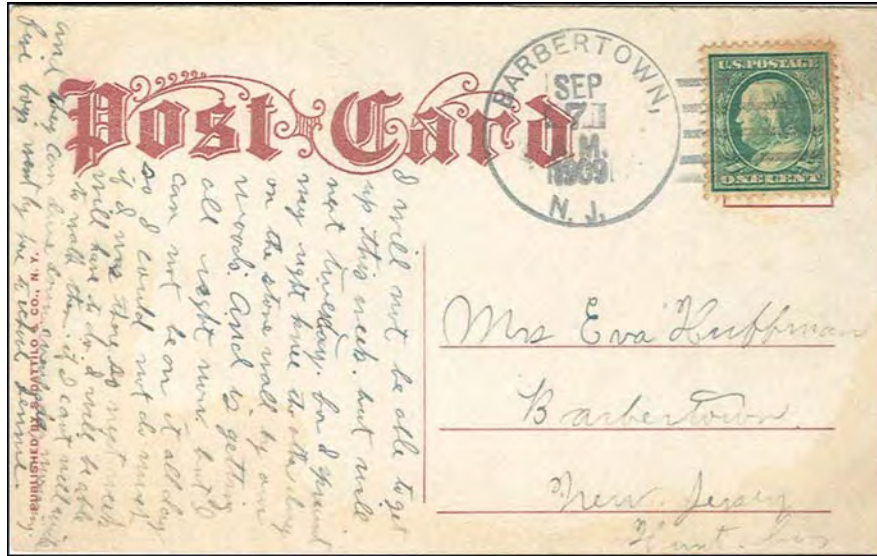 Post Card
BARBERTOWN,
SEP
7
M.
1909
N. J.
U.S. POSTAGE
ONE CENT
I will not be able to get
up this week. but will
next tuesday. for I
my right knee the other day
on the stone wall by our
woods. And is getting
all right now but I
can not be on it all day
so I could not do much
if I was there so next week
will have to do. I will be able
to walk then. if I cant well
and they can
five boys went by here to school Jennie.
Mrs Eva Huffman
Barbertown.
New Jersey
Hunt. Co
PUBLISHED BY S. DATTILO & CO., N. Y.